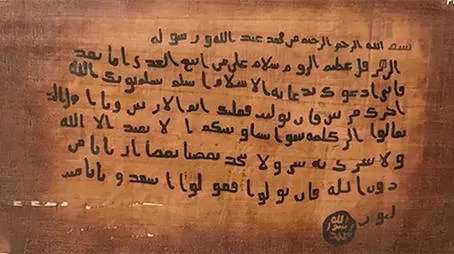 بسم الله الرحمن الرحيم من محمد عبد الله ورسوله
الى هرقل عظيم الروم سلام على من اتبع الهدى اما بعد
فانى ادعوك بدعاية الاسلام اسلم تسلم يوتك الله
اجرك مرتين فان توليت فعليك اثم الاريسين ويا اهل
تعالوا الى كلمة سوا بيننا وبينكم الا نعبد الا الله
ولا نشرك به شيا ولا يتخذ بعضنا بعضا اربابا من
دون الله فان تولوا فقولوا اشهدوا بانا مس
لمون
الله
رسول
محمد